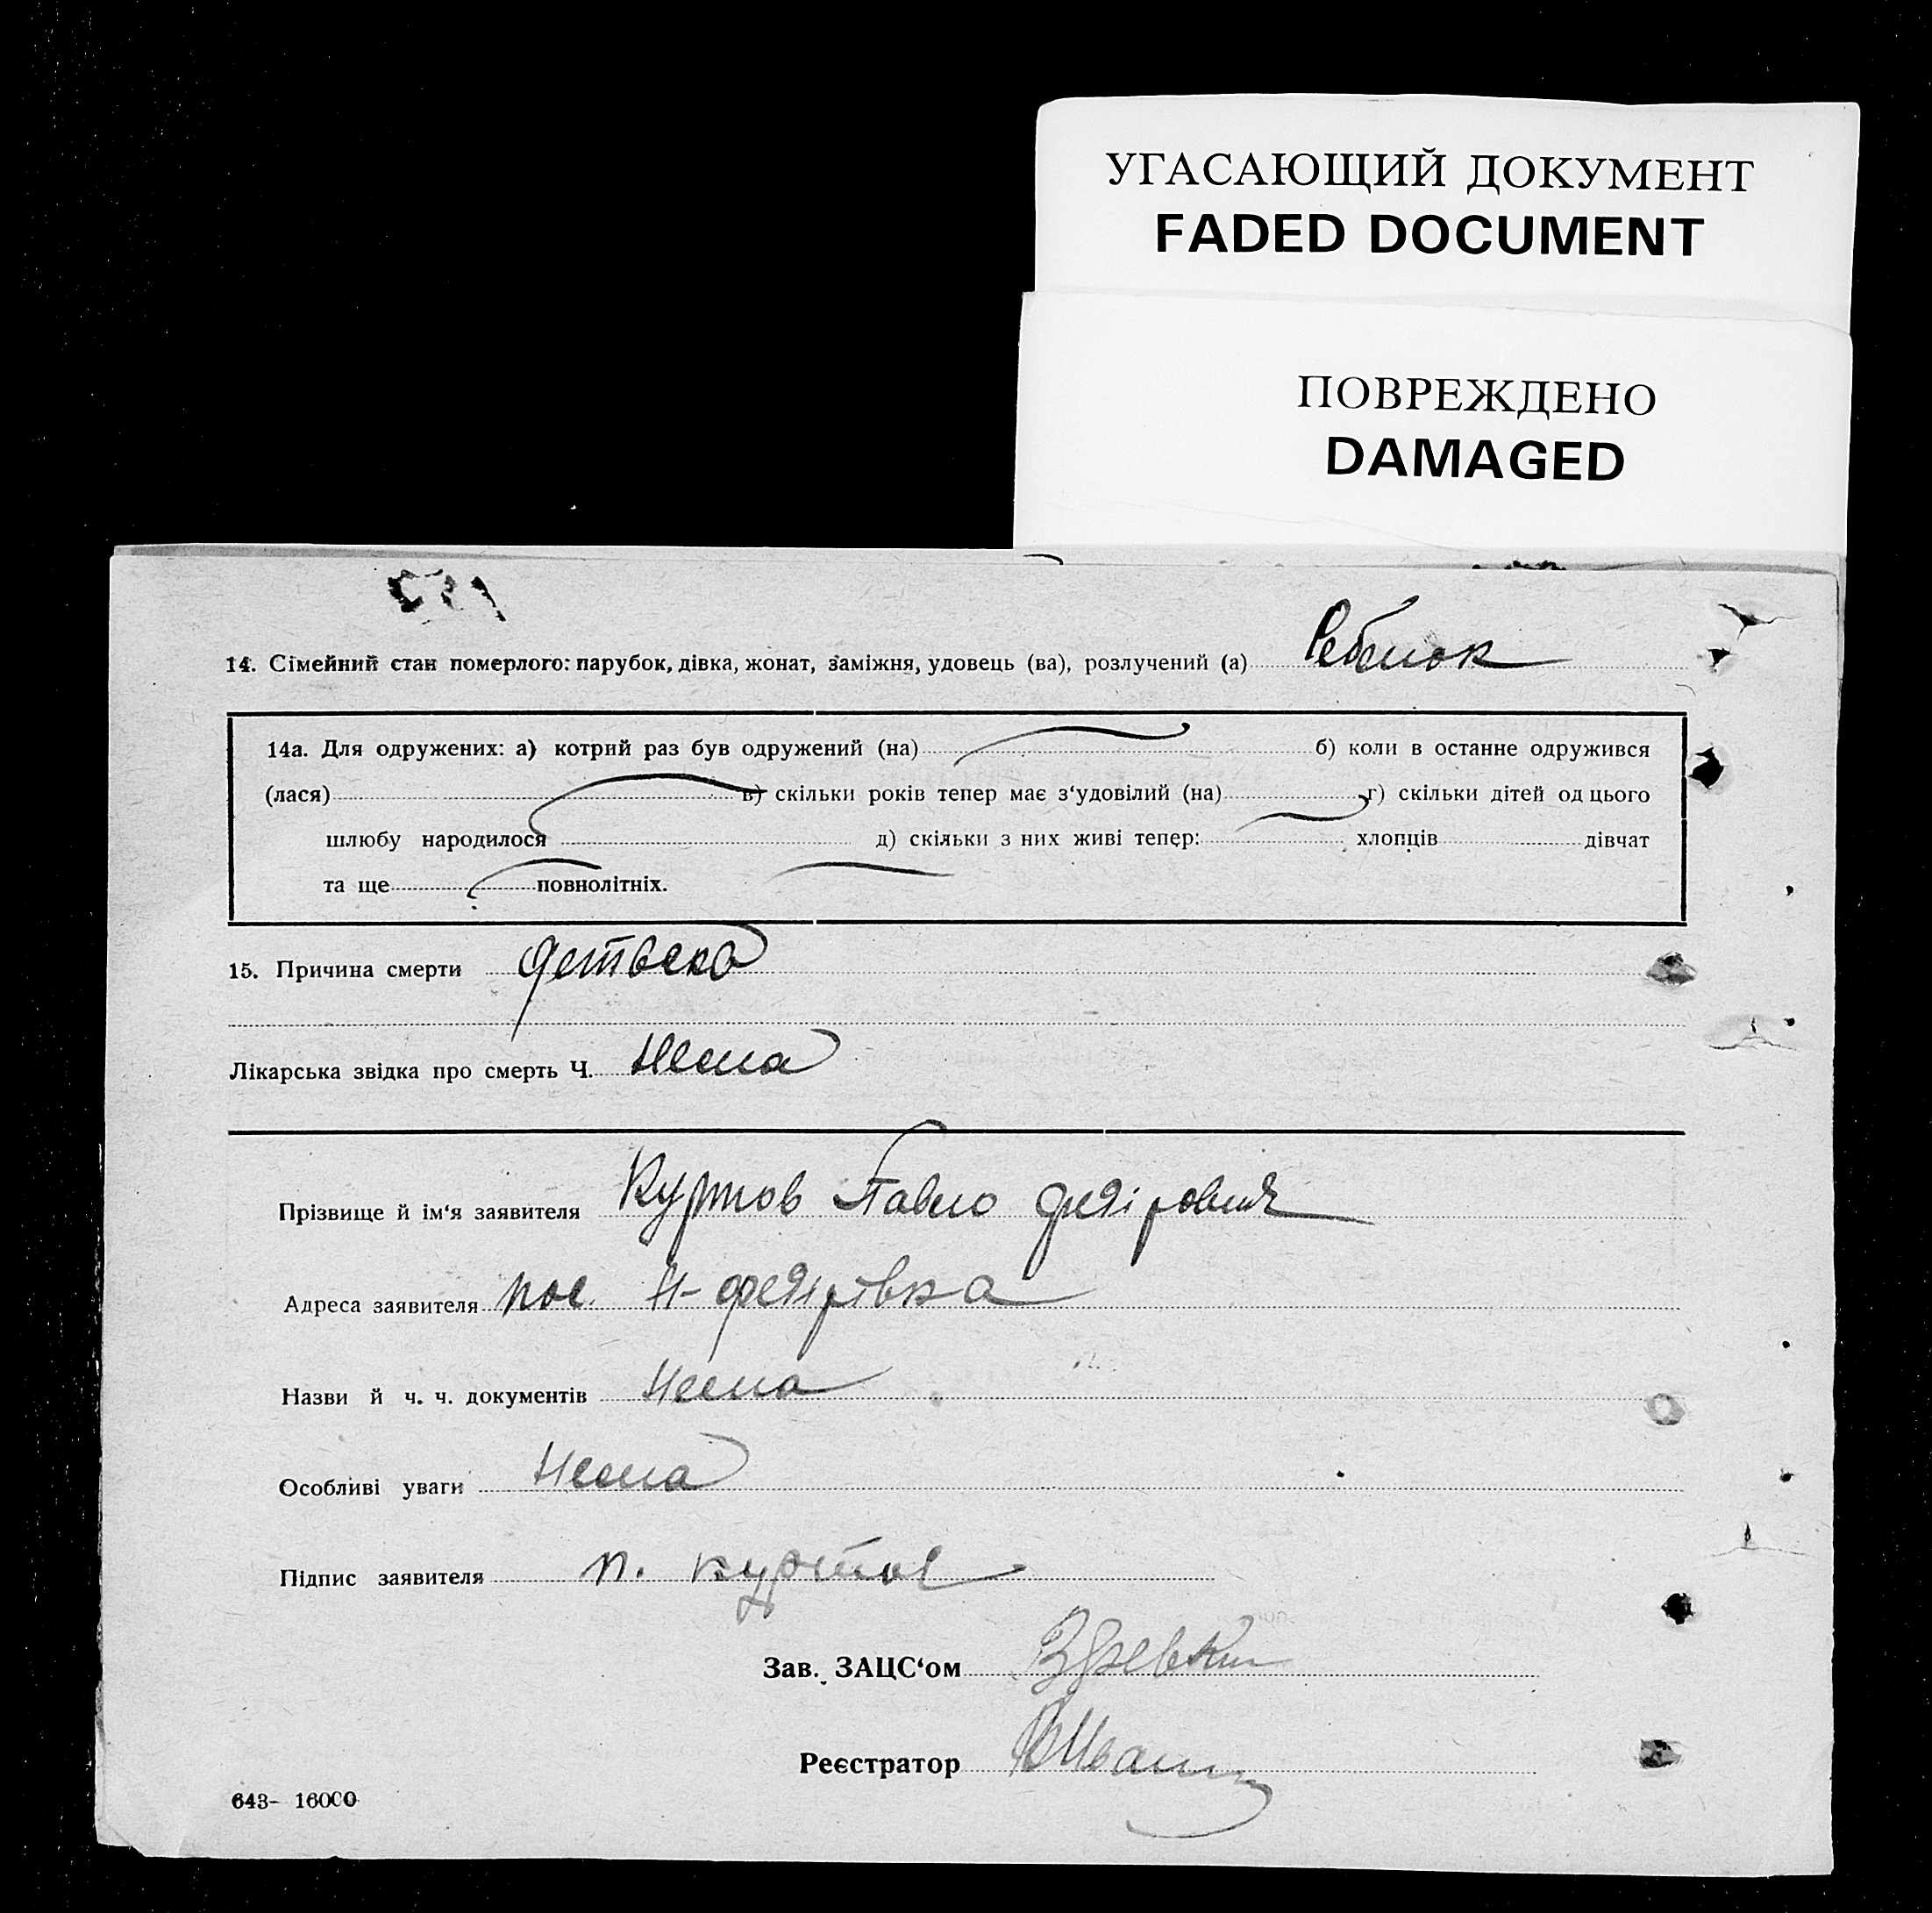 УГАСАЮЩИЙ ДОКУМЕНТ
FADED DOCUMENT
ПОВРЕЖДЕНО
DAMAGED
14. Сімейний стан померлого: парубок, дівка, жонат, заміжня, удовець (ва), розлучений (а) Ребенок
14а. Для одружених: а) котрий раз був одружений (на) б) коли в останне одружився
(лася) в) скільки років тепер має з‘удовілий (на) г) скільки дітей од цього
шлюбу народилося д) скільки з них живі тепер: хлопців дівчат
та ще повнолітніх.
15. Причина смерти
Лікарська звідка про смерть Ч. Нема
Прізвище й ім‘я заявителя Куртов Павло Федірович
Адреса заявителя пос. Н-Федірівка
Назви й ч. ч. документів Нема
Особливі уваги Нема
Підпис заявителя П. Куртов
Зав. ЗАЦС‘ом
Реєстратор
643- 16000